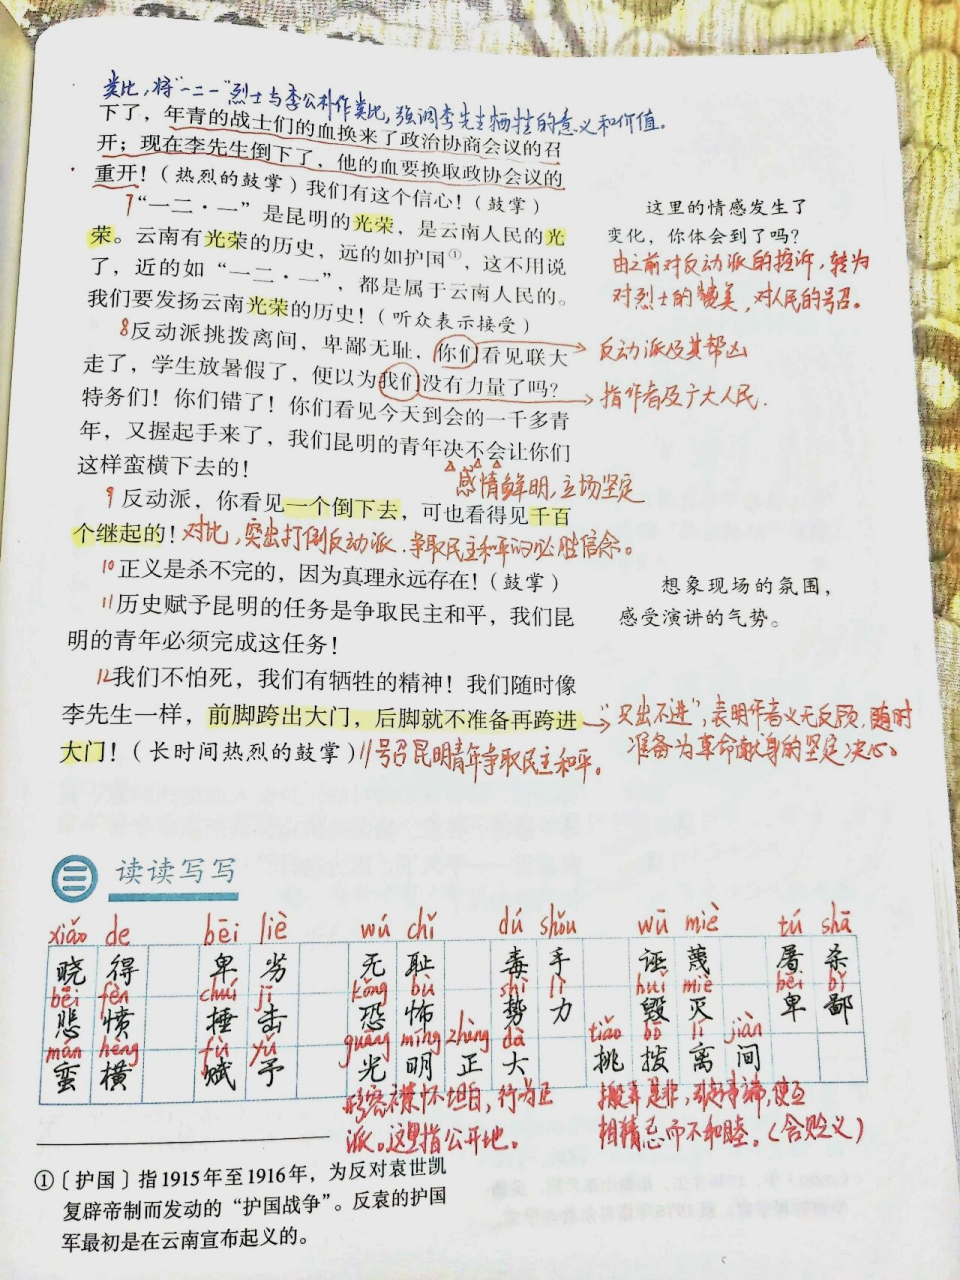 类比，将“一二一”烈士与李公朴作类比，强调李先生牺牲的意义和价值。
下了，年青的战士们的血换来了政治协商会议的召
开；现在李先生倒下了，他的血要换取政协会议的
重开！（热烈的鼓掌）我们有这个信心！（鼓掌）
7“一二·一”是昆明的光荣，是云南人民的光
荣。云南有光荣的历史，远的如护国①，这不用说
了，近的如“一二·一”，都是属于云南人民的。
我们要发扬云南光荣的历史！（听众表示接受）
这里的情感发生了
变化，你体会到了吗？
由之前对反动派的控诉，转为
对烈士的赞美，对人民的号召。
8反动派挑拨离间，卑鄙无耻，你们看见联大
走了，学生放暑假了，便以为我们没有力量了吗？
特务们！你们错了！你们看见今天到会的一千多青
年，又握起手来了，我们昆明的青年决不会让你们
这样蛮横下去的！
反动派及其帮凶
指作者及广大人民.
感情鲜明，立场坚定
9反动派，你看见一个倒下去，可也看得见千百
个继起的！对比，突出打倒反动派，争取民主和平的必胜信念。
10正义是杀不完的，因为真理永远存在！（鼓掌）
11历史赋予昆明的任务是争取民主和平，我们昆
明的青年必须完成这任务！
想象现场的氛围，
感受演讲的气势。
12我们不怕死，我们有牺牲的精神！我们随时像
李先生一样，前脚跨出大门，后脚就不准备再跨进
大门！（长时间热烈的鼓掌）11号召昆明青年争取民主和平。
“只出不进”，表明作者义无反顾，随时
准备为革命献身的坚定决心。
三 读读写写
xiǎo de bēi liè wú chǐ dú shǒu wū miè tú shā
晓得 卑劣 无耻 毒手 诬蔑 屠杀
bēi fèn chuí jī kǒng bù shì lì huǐ miè bēi bǐ
悲愤 捶击 恐怖 势力 毁灭 卑鄙
mán hèng fù yǔ guāng míng zhèng dà tiǎo bō lí jiàn
蛮横 赋予 光明正大 挑拨离间
形容襟怀坦白，行为正
派。这里指公开地。
搬弄是非，引起事端，使互
相猜忌而不和睦。（含贬义）
①〔护国〕指1915年至1916年，为反对袁世凯
复辟帝制而发动的“护国战争”。反袁的护国
军最初是在云南宣布起义的。